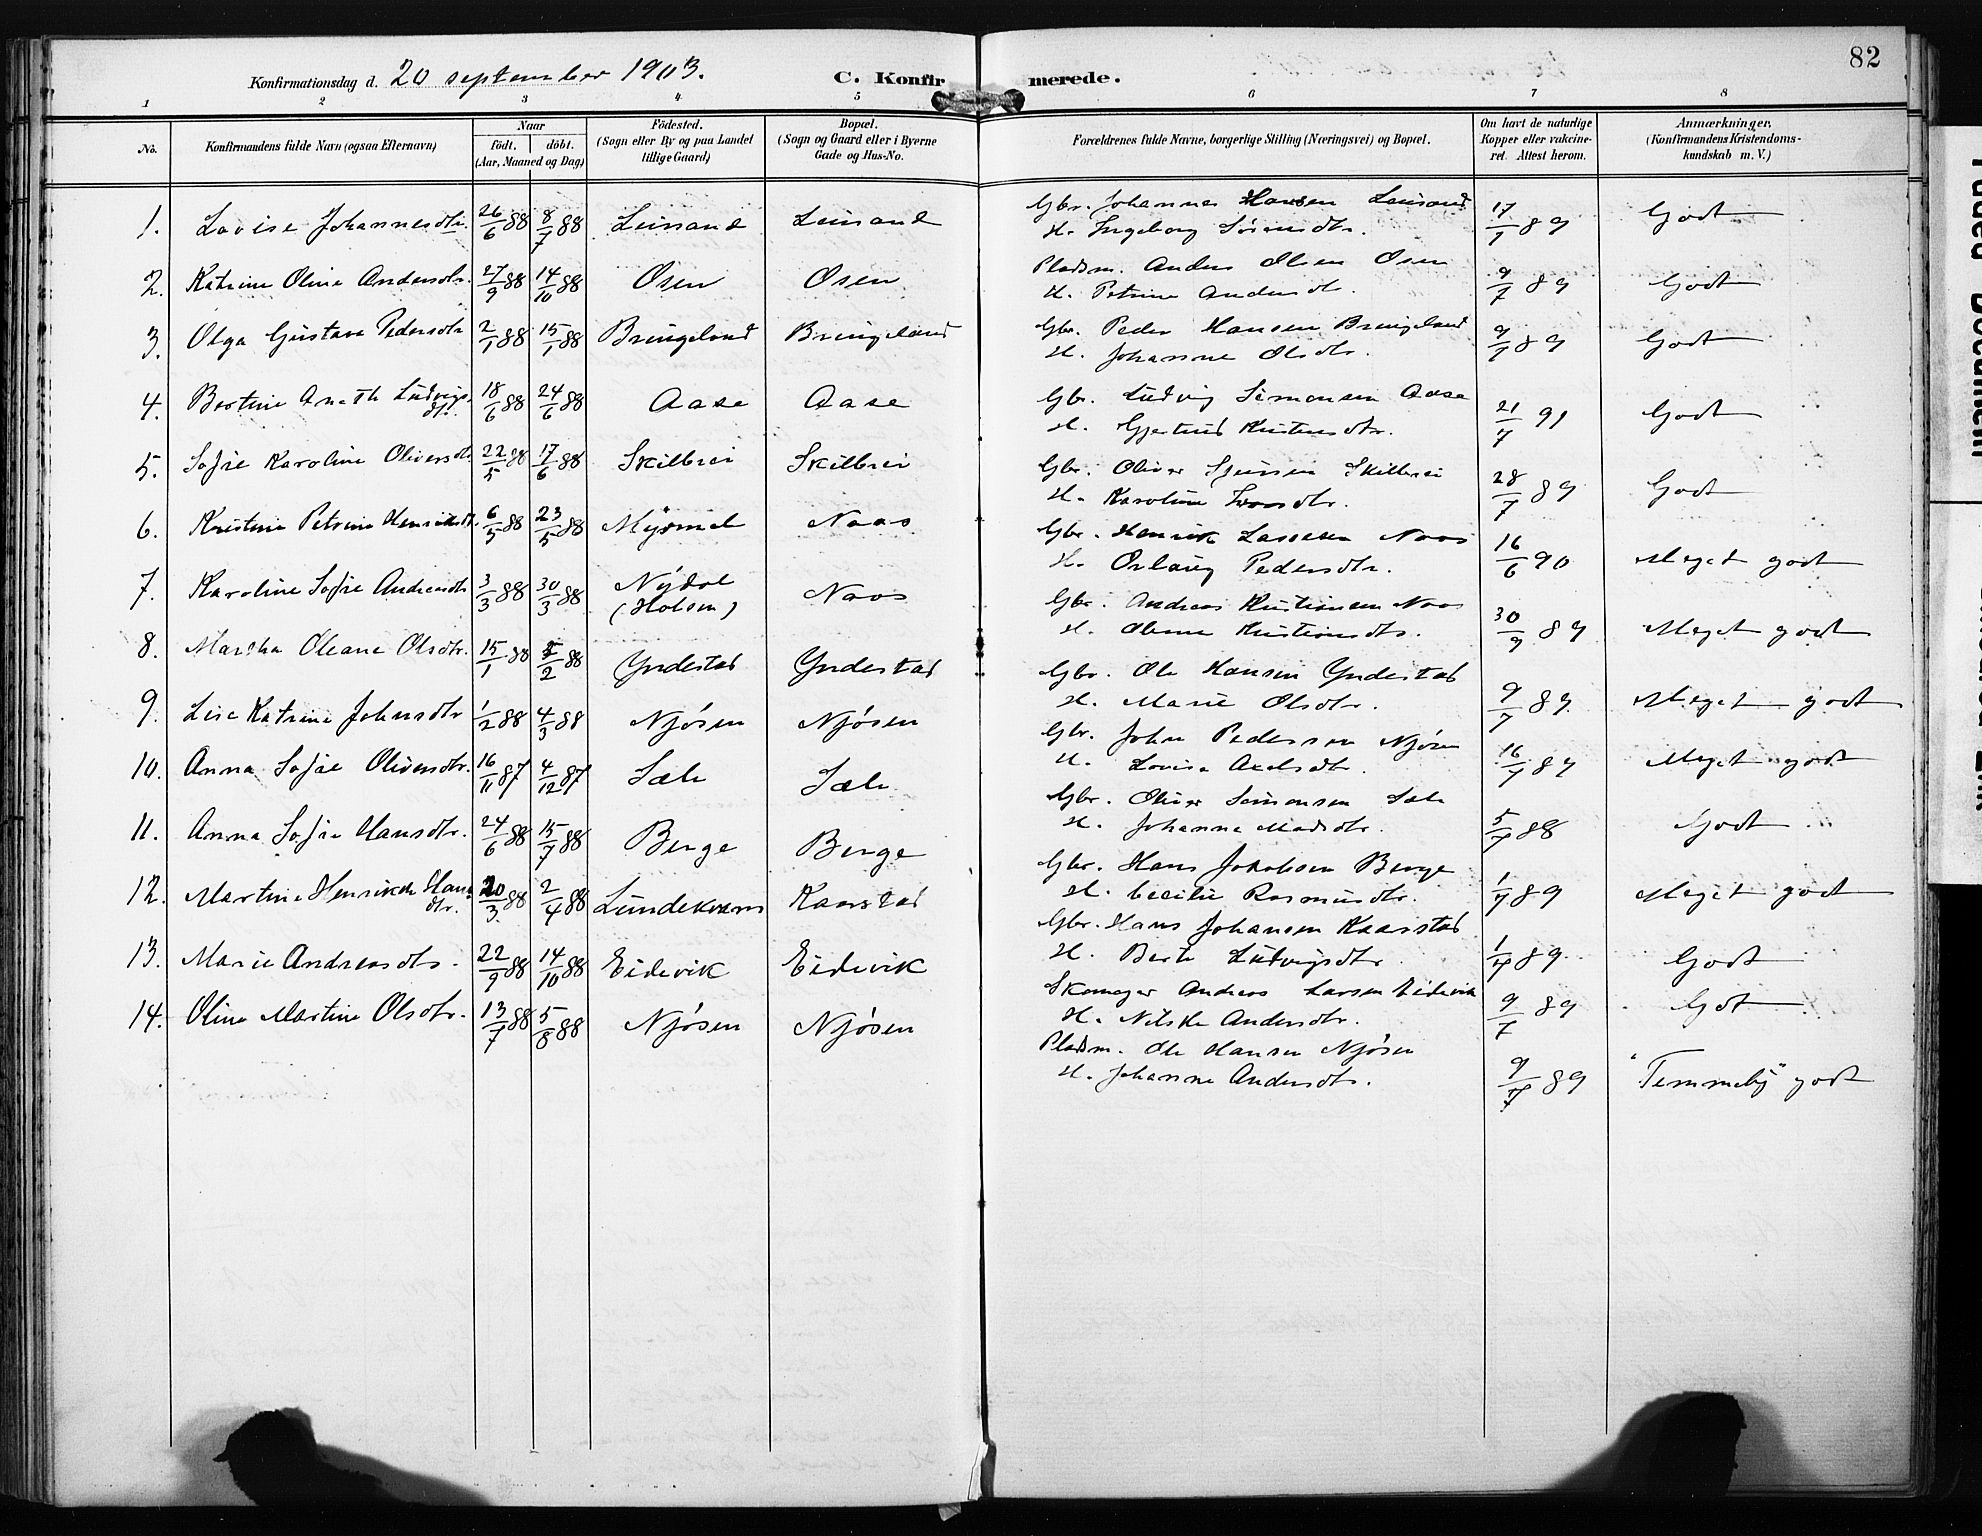 82
Konfirmationsdag d. 20 september 1903.
C. Konfirmerede.
1 2 3 4 5 6 7 8
No.
Konfirmandens fulde Navn (ogsaa Efternavn)
Naar
födt. döbt.
(Aar, Maaned og Dag)
Födested.
(Sogn eller By og paa Landet
tillige Gaard)
Bopæl.
(Sogn og Gaard eller i Byerne
Gade og Hus-No.
Forældrenes fulde Navne, borgerlige Stilling (Næringsvei) og Bopæl.
Om havt de naturlige
Kopper eller vakcine-
ret. Attest herom.
Anmærkninger.
(Konfirmandens Kristendoms-
kundskab m. V.)
1. Lovise Johannesdtr. 26/6 88 8/7 88 Leirand Leirand Gbr. Johannes Hansen Leirand
H. Ingeborg Sörensdtr. 17/7 89 Godt
2. Katrine Oline Andersdtr. 27/9 88 14/10 88 Osen Osen Pladsm. Anders Olsen Osen
H. Petrine Andersdtr. 9/7 89 Godt
3. Olga Gustava Pedersdtr 2/1 88 15/1 88 Bringeland Bringeland Gbr. Peder Hansen Bringeland
H. Johanne Olsdtr. 9/7 89 Godt
4. Bertine Aneth Ludvigs-
dtr. 18/6 88 24/6 88 Aase Aase Gbr. Ludvig Simonsen Aase
H. Gjertrud Kristensdtr. 21/7 91 Godt
5. Sofie Karoline Oliversdtr. 22/5 88 17/6 88 Skilbrei Skilbrei Gbr. Oliver Skilbrei
H. Karoline 28/7 89 Godt
6. Kristine Petrine Henriksdt. 6/5 88 23/5 88 Naas Gbr. Henrik Lassesen Naas
H. Orlaug Pedersdtr. 16/6 90 Meget godt
7. Karoline Sofie Andreasdtr 3/3 88 30/3 88 Nydal
(Holsen) Naas Gbr. Andreas Kristiansen Naas
H. Kristiansdtr. 30/9 89 Meget godt
8. Martha Oleane Olsdtr. 15/1 88 5/2 88 Yndestad Yndestad Gbr. Ole Hansen Yndestad
H. Marie Olsdtr. 9/7 89 Meget godt
9. Lise Katrine Johnsdtr 1/2 88 4/3 88 Njösen Njösen Gbr. John Pedersen Njösen
H. Lovise Axelsdtr. 16/7 89 Meget godt
10. Anna Sofie Oliversdtr. 16/11 87 4/12 87 Sæle Sæle Gbr. Oliver Simonsen Sæle
H. Johanne Madsdtr. 5/7 88 Godt
11. Anna Sofie Hansdtr. 24/6 88 15/7 88 Berge Berge Gbr. Hans Jakobsen Berge
H. Cecilie Rasmusdtr. 1/7 89 Meget godt
12. Martine Henrikke Hans-
dtr. 20/3 88 2/4 88 Lundekvam Kaarstad Gbr. Hans Johansen Kaarstad
H. Berte Ludvigsdtr 1/7 89 Godt
13. Marie Andreasdtr. 22/9 88 14/10 88 Eidevik Eidevik Skomager Andreas Larsen Eidevik
H. Nilske Andersdtr. 9/7 89 Godt
14. Oline Martine Olsdtr. 13/7 88 5/8 88 Njösen Njösen Pladsm. Ole Hansen Njösen
H. Johanne Andersdtr. 9/7 89 "Temmelig" godt